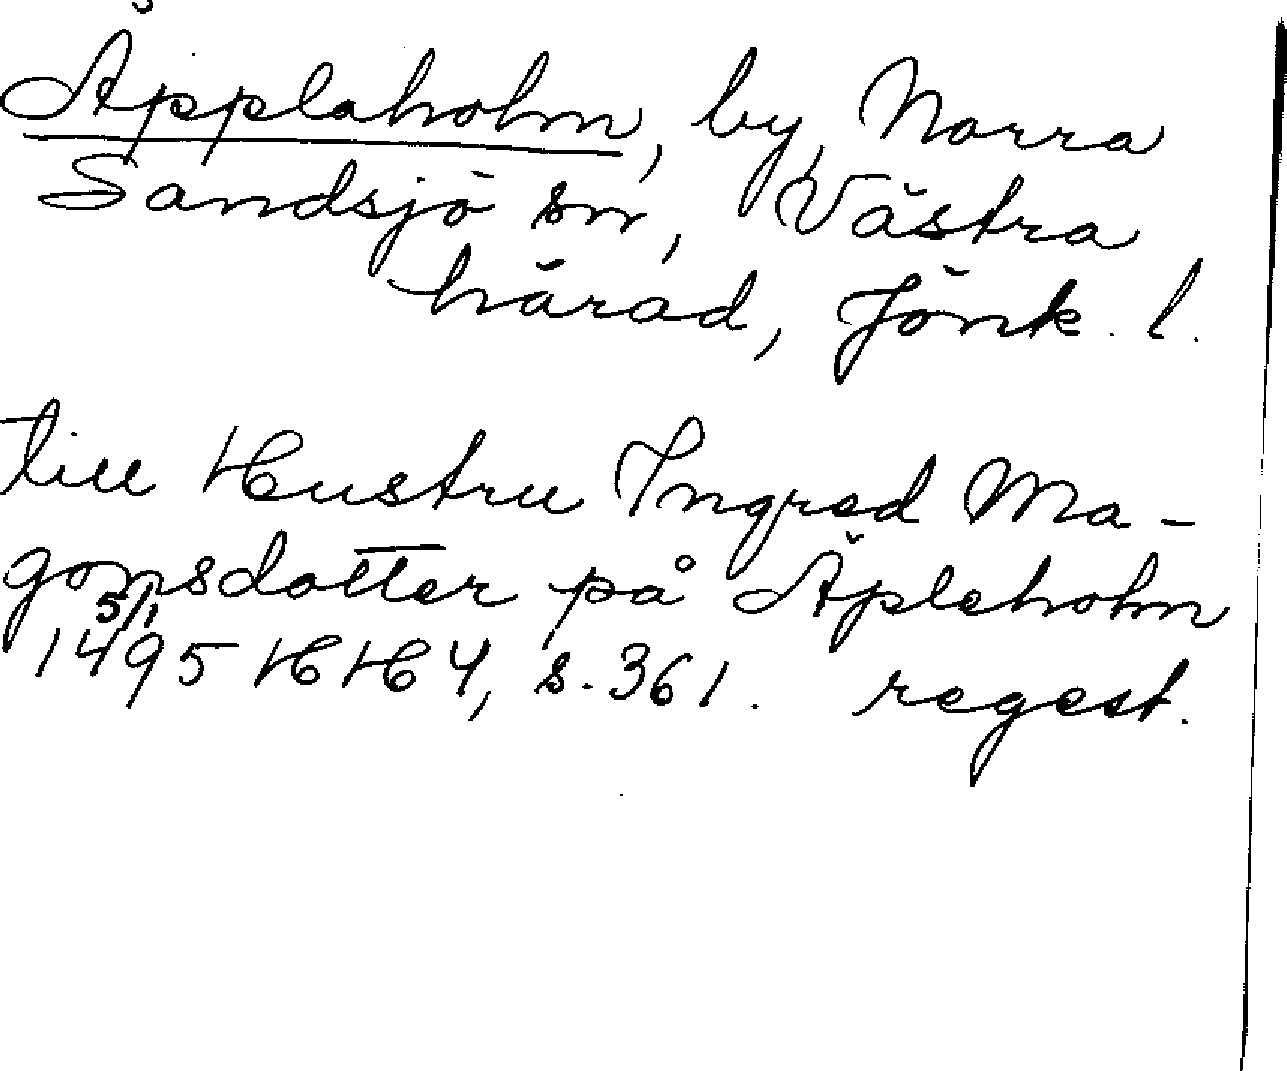 Äpplaholm, by, Norra
Sandsjö sn, Västra
härad, Jönk. l.
till Hustru Ingred Ma-
gonsdotter på Äpleholm
5/1
1495 HH 4, s. 361. regest.